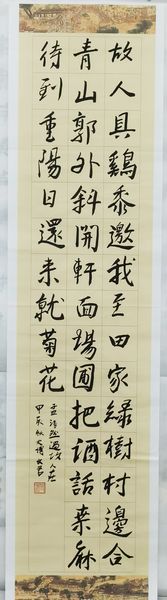 故人具鷄黍邀我至田家綠樹村邊合
青山郭外斜開軒面場圃把酒話桑麻
待到重陽日還來就菊花
孟浩然過故人莊
甲辰秋